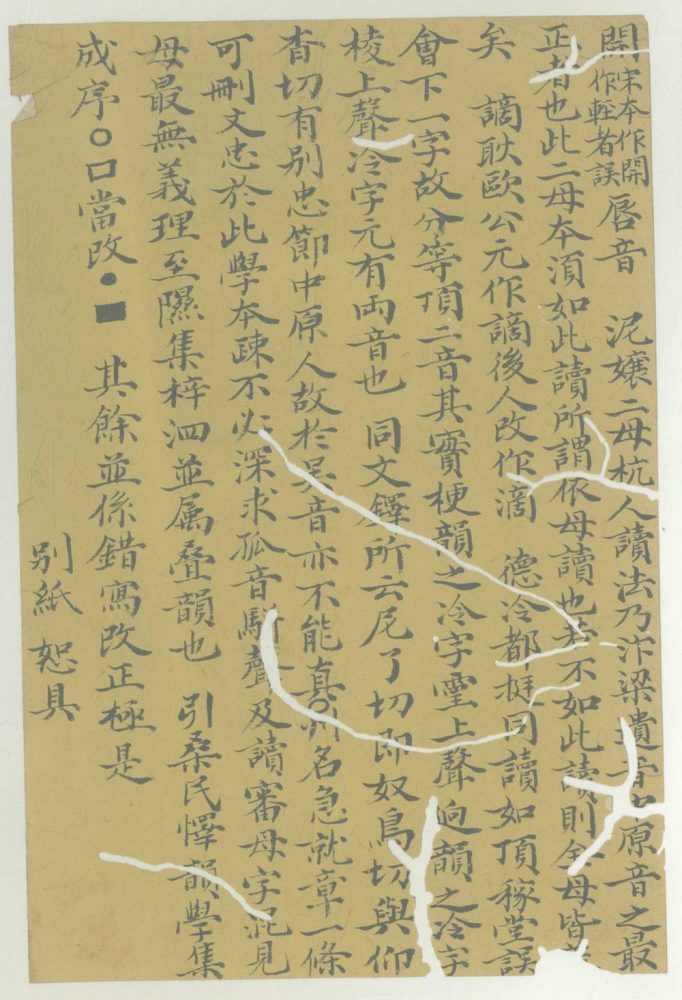 開宋本作開作輕者誤唇音　泥孃二母杭人讀法乃汴梁遺音中原音之最
正者也此二母本須如此讀所謂依母讀也若不如此讀則全母皆
矣　謫耿歐公元作謫後人改作滴　德冷都挺同讀如頂稼堂誤
會下一字故分等頂二音其實梗韻之冷字靈上聲迥韻之冷字
棱上聲冷字元有兩音也　同文鐸所云尼了切即奴鳥切與仰
杳切有別忠節中原人故於吳音亦不能真○州名急就章一條
可刪文忠於此學本疎不必深求孤音駢聲及讀審母字混見
母最無義理至隰集梓泗並属疊韻也　引桑民懌韻學集
成序○口當改●■　其餘並係錯寫改正極是
別紙恕具